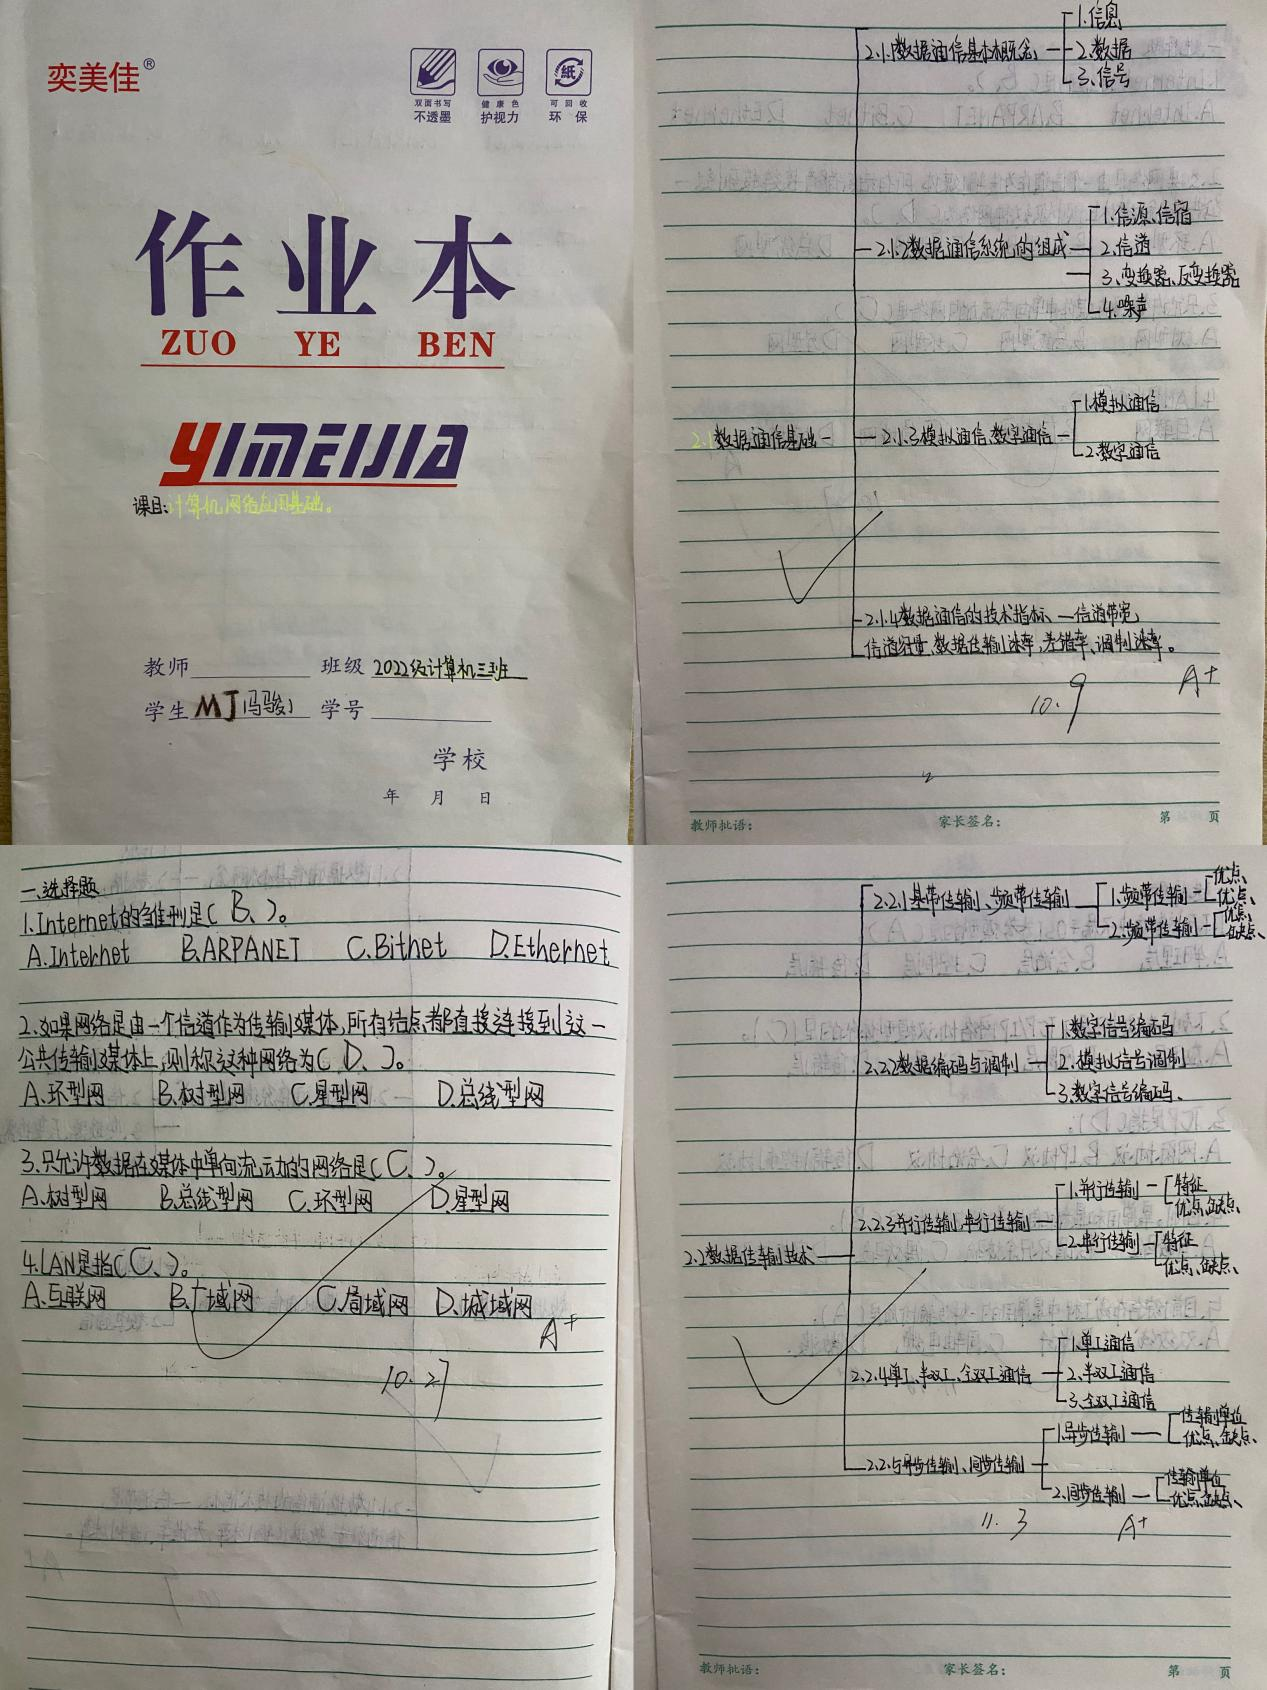 奕美佳®
双面书写
不透墨
健康色
护视力
可回收
环保
作业本
ZUO YE BEN
YIMEIJIA
课目:计算机网络应用基础。
教师 班级 2022级计算机三班
学生 MJ(冯骏) 学号
学校
年 月 日
2.1数据通信基础
2.1.1数据通信基本概念
1.信息
2.数据
3.信号
2.1.2数据通信系统的组成
1.信源、信宿
2.信道
3.变换器、反变换器
4.噪声
2.1.3模拟通信、数字通信
1.模拟通信
2.数字通信
2.1.4数据通信的技术指标、—信道带宽,
信道容量、数据传输速率,差错率、调制速率。
10.9
A+
教师批语: 家长签名: 第 页
一、选择题
1.Internet的雏型是(B、)。
A.Internet B.ARPANET C.Bitnet D.Ethernet
2.如果网络是由一个信道作为传输媒体,所有结点都直接连接到这一
公共传输媒体上,则称这种网络为(D、)。
A.环型网 B.树型网 C.星型网 D.总线型网
3.只允许数据在媒体中单向流动的网络是(C、)。
A.树型网 B.总线型网 C.环型网 D.星型网
4.LAN是指(C、)。
A.互联网 B.广域网 C.局域网 D.城域网
A+
10.27
2.2数据传输技术
2.2.1基带传输、频带传输
1.频带传输
优点、
优点、
2.频带传输
优点、
缺点、
2.2.2数据编码与调制
1.数字信号编码
2.模拟信号调制
3.数字信号编码、
2.2.3并行传输,串行传输
1.并行传输
特征
优点、缺点、
2.串行传输
特征
优点、缺点、
2.2.4单工、半双工、全双工通信
1.单工通信
2.半双工通信
3.全双工通信
2.2.5异步传输、同步传输
1.异步传输
传输单位
优点、缺点、
2.同步传输
传输单位
优点、缺点、
11.3
A+
教师批语: 家长签名: 第 页